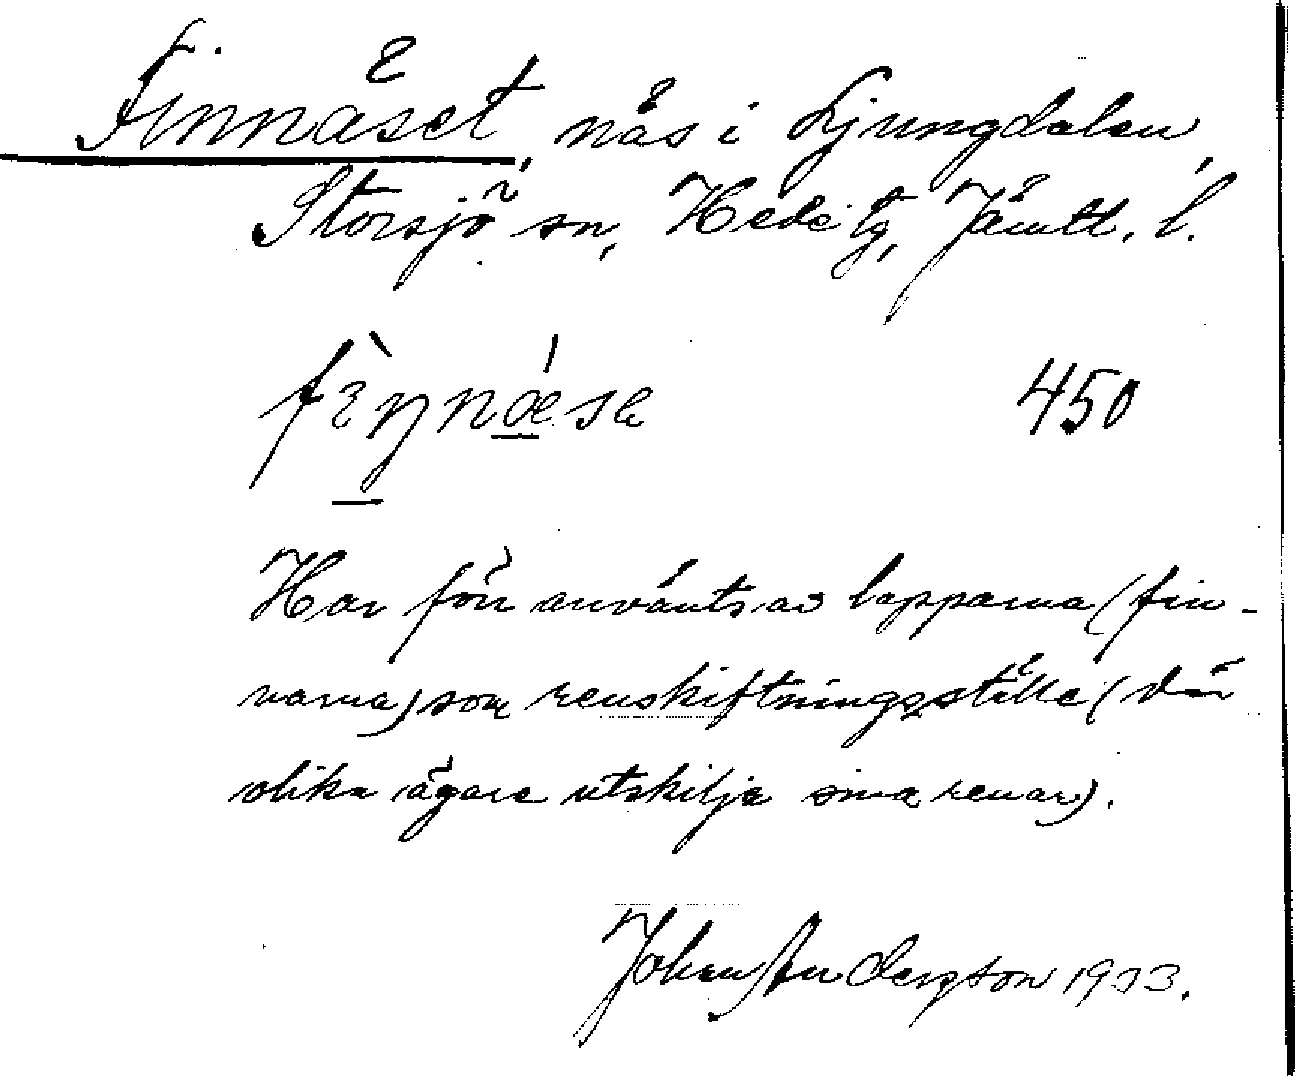 Finnäset, näs i Ljungdalen,
Storsjö sn, Hede tg, Jämtl. l.
450
Har förr använts av lapparna (fin-
narna) som renskiftningsställe (där
olika ägare utskilja sina renar).
Johan Anderzson 1933.